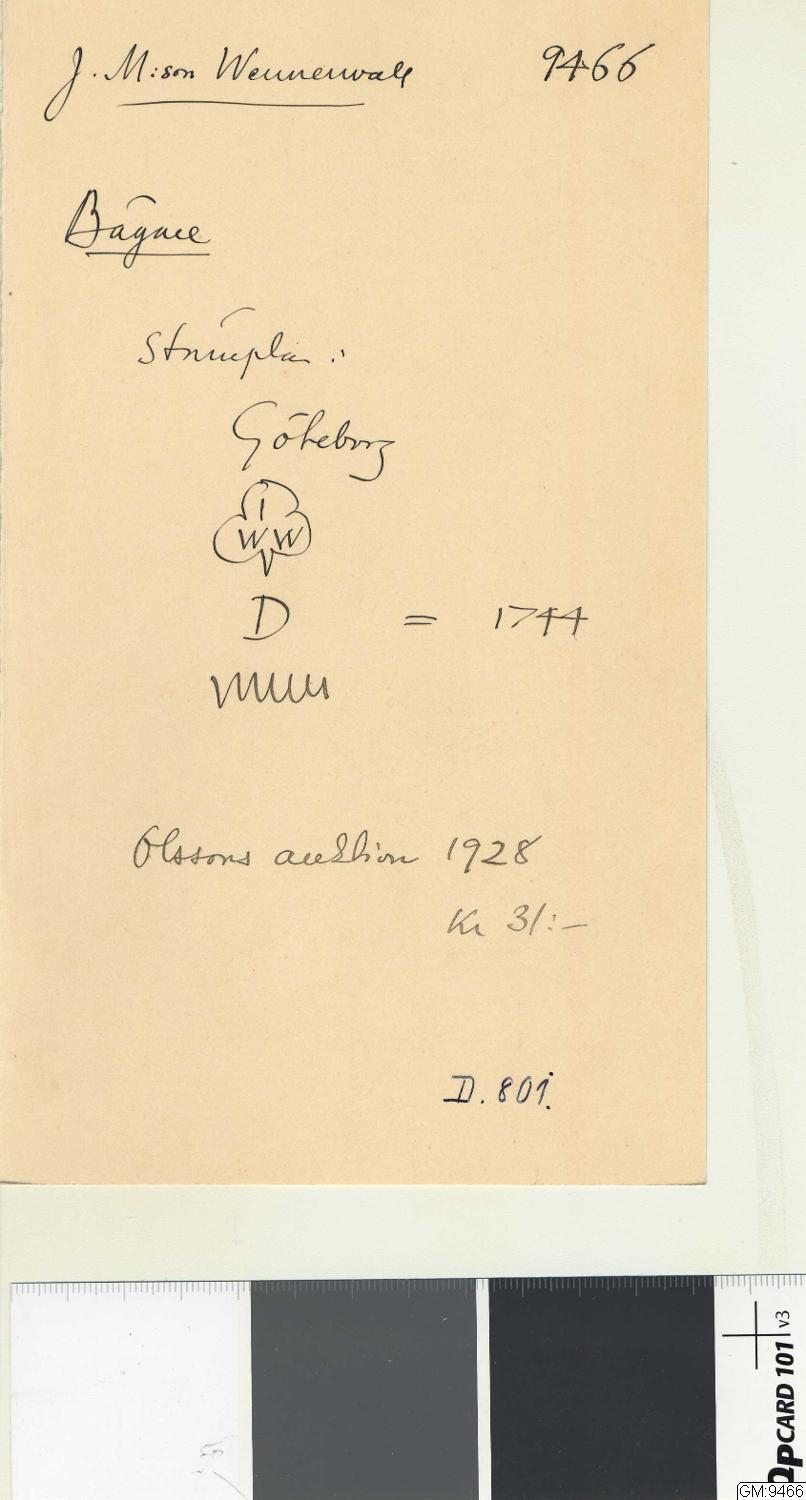 J. M:son Wennerwall 9466
Bägare
Stämplar:
Göteborg
I
W W
D = 1744
Olssons auktion 1928
Kr 31:-
D. 801.
QPCARD 101 v3
GM:9466